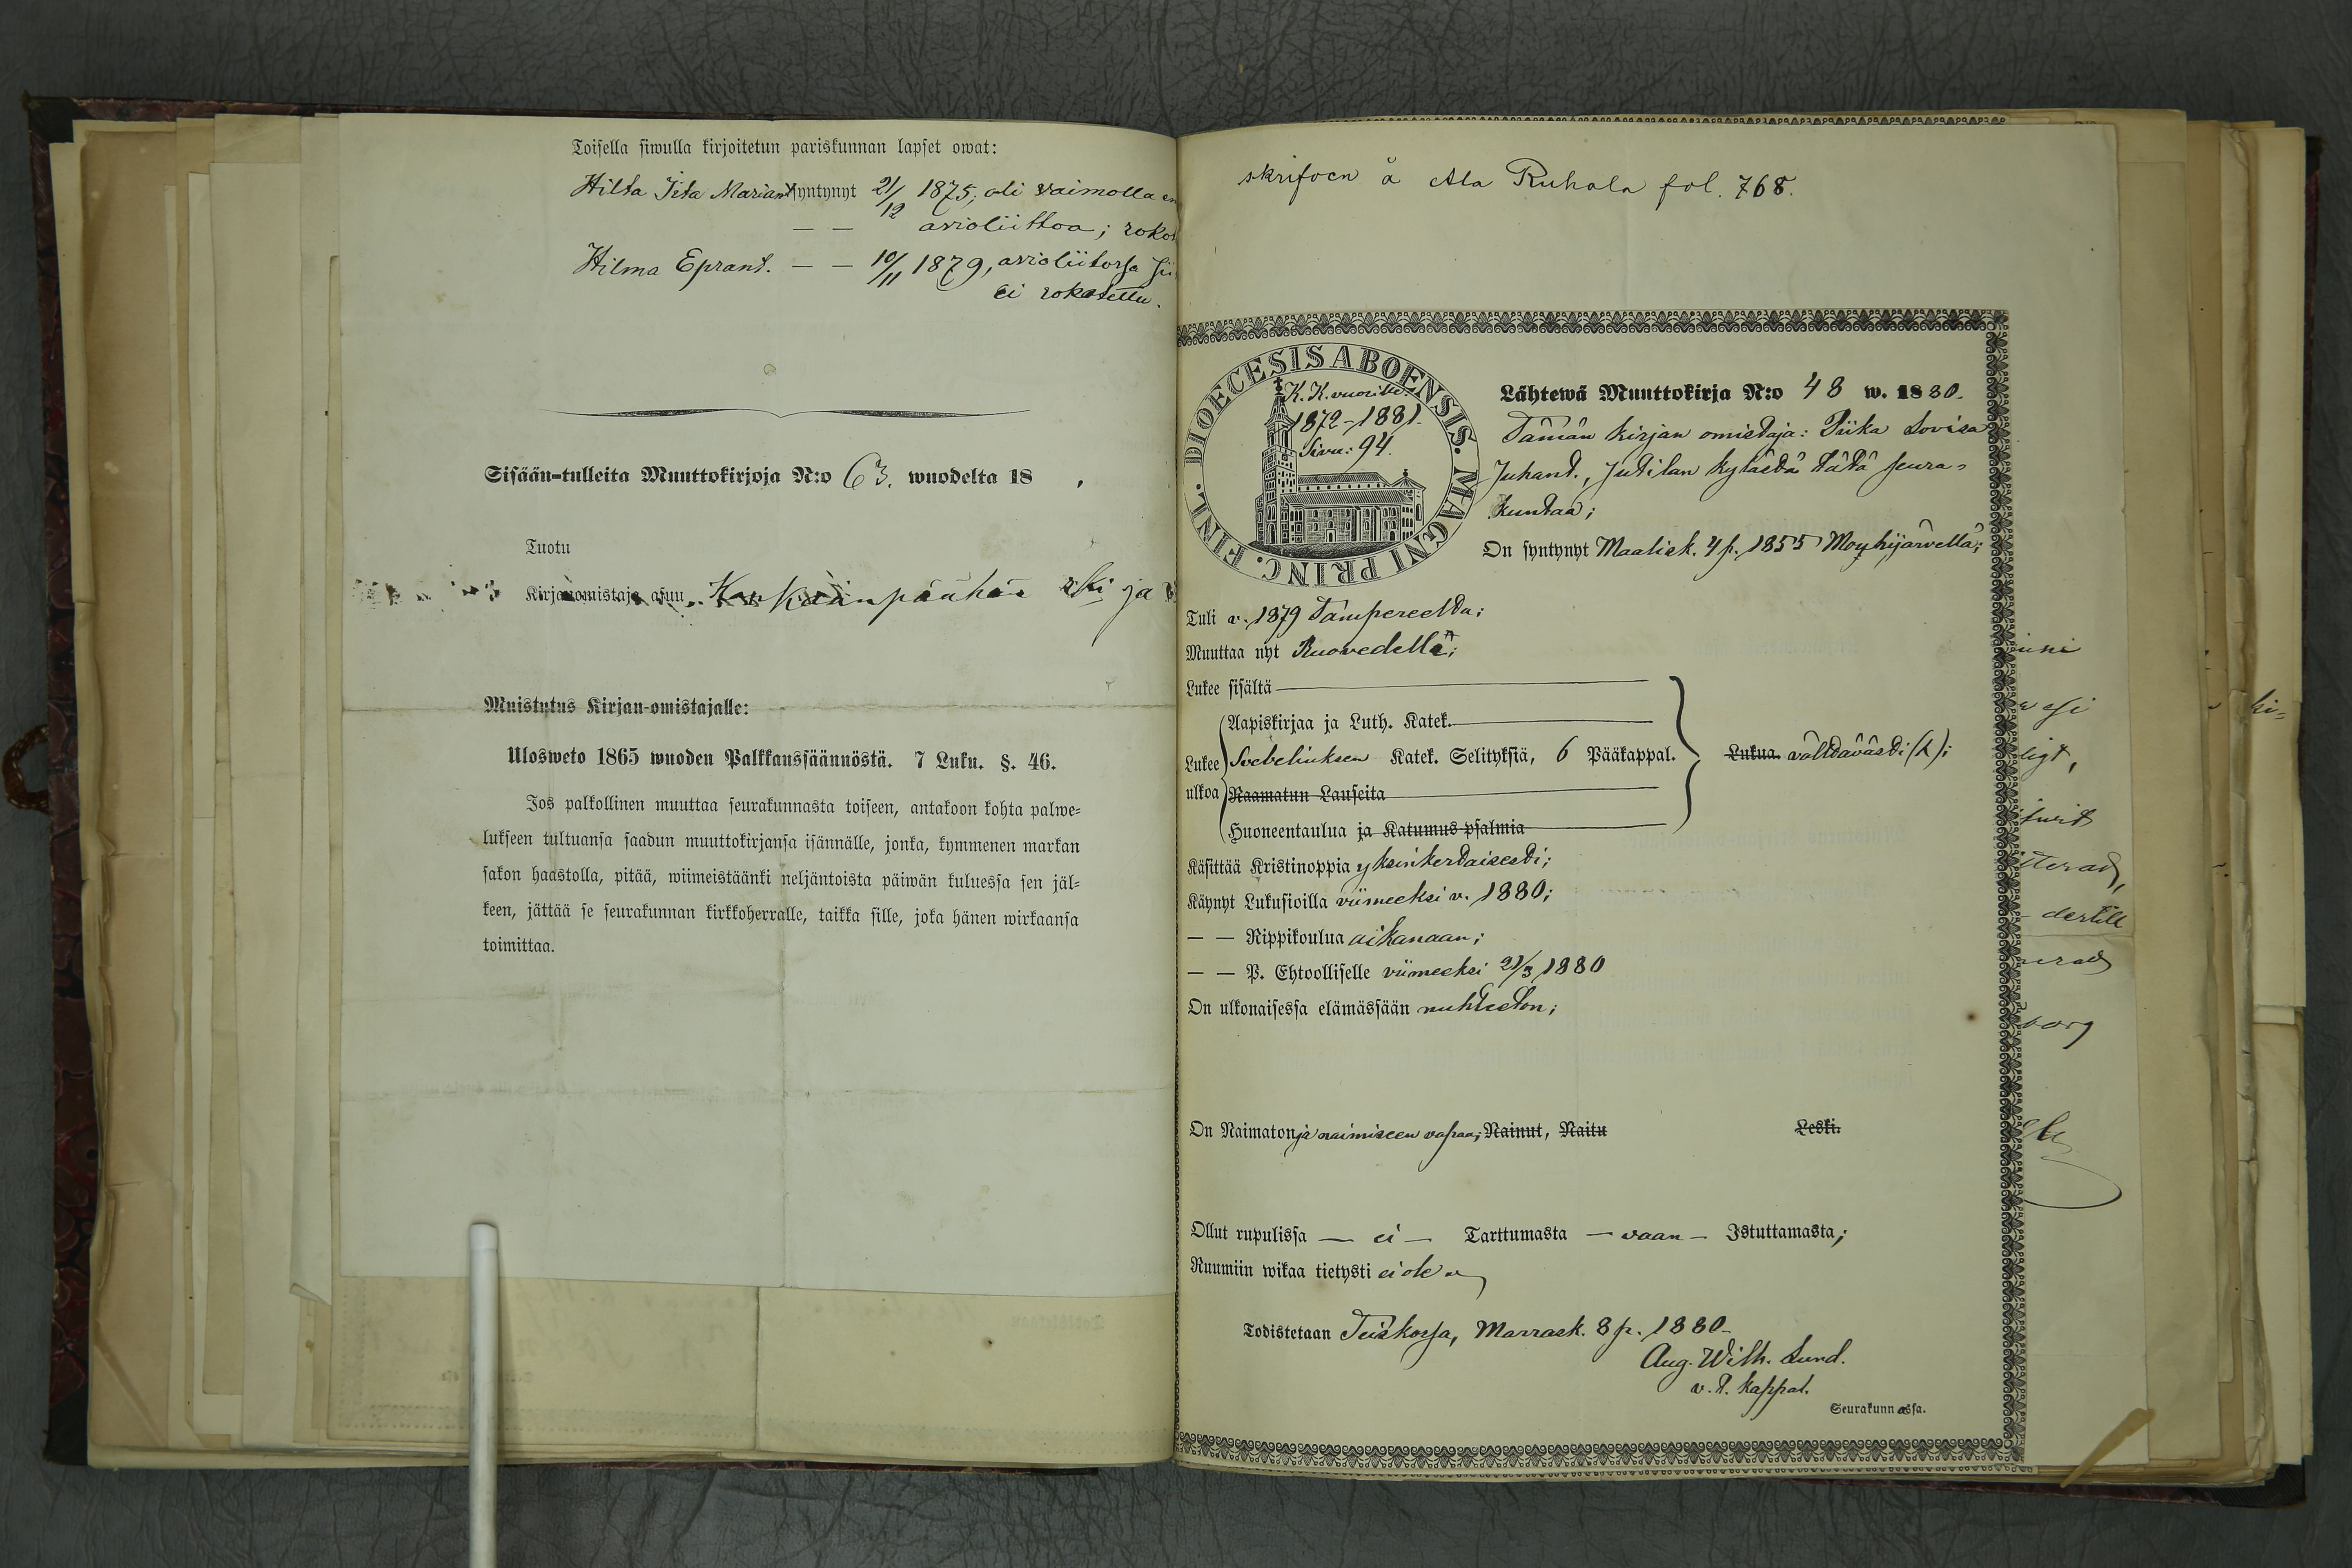 Toisella siwulla kirjoitetun pariskunnan lapset owat:
Hilta Iita Mariant. syntynyt 21/12 1875; oli vaimolla
— — avioliittoa;
Hilma Eprant. — — 10/11 1879, avioliitossa
ei rokotettu.
Sisään-tulleita Muuttokirjoja N:o 63. wuodelta 18 .
Tuotu
Kirjanomistaja asuu Kankaanpäähän ja
Muistutus Kirjan-omistajalle:
Ulosweto 1865 wuoden Palkkaussäännöstä. 7 Luku. §. 46.
Jos palkollinen muuttaa seurakunnasta toiseen, antakoon kohta palwe-
lukseen tultuansa saadun muuttokirjansa isännälle, jonka, kymmenen markan
sakon haastolla, pitää, wiimeistäänki neljäntoista päiwän kuluessa sen jäl-
keen, jättää se seurakunnan kirkkoherralle, taikka sille, joka hänen wirkaansa
toimittaa.
skrifven å Ala Ruhala fol. 768.
DIOECESIS ABOENSIS. MAGNI PRINC. FINL.
K. K. vuosilta
1872-1881.
Sivu: 94.
Lähtewä Muuttokirja N:o 48 w. 1880.
Tämän kirjan omistaja: Piika Lovisa
Juhant., Jutilan kylästä tätä seura-
kuntaa;
On syntynyt Maalisk. 4 p. 1855 Mouhijärvellä;
Tuli v. 1879 Tampereelta;
Muuttaa nyt Ruovedelle;
Lukee sisältä
Aapiskirjaa ja Luth. Katek.
Lukee Svebeliuksen Katek. Selityksiä, 6 Pääkappal. Lukua. välttävästi (h);
ulkoa Raamatun Lauseita
Huoneentaulua ja Katumus psalmia
Käsittää Kristinoppia yksinkertaisesti;
Käynyt Lukusioilla viimeeksi v. 1880;
— — Rippikoulua aikanaan;
— — P. Ehtoolliselle viimeeksi 21/3 1880
On ulkonaisessa elämässään nuhteeton;
On Naimaton ja naimiseen vapaa; Nainut, Naitu Leski.
Ollut rupulissa — ei — Tarttumasta — vaan — Istuttamasta;
Ruumiin wikaa tietysti ei ole
Todistetaan Teiskossa, Marrask. 8 p. 1880.
Aug. Wilh. Lund.
v. t. kappal.
Seurakunnassa.